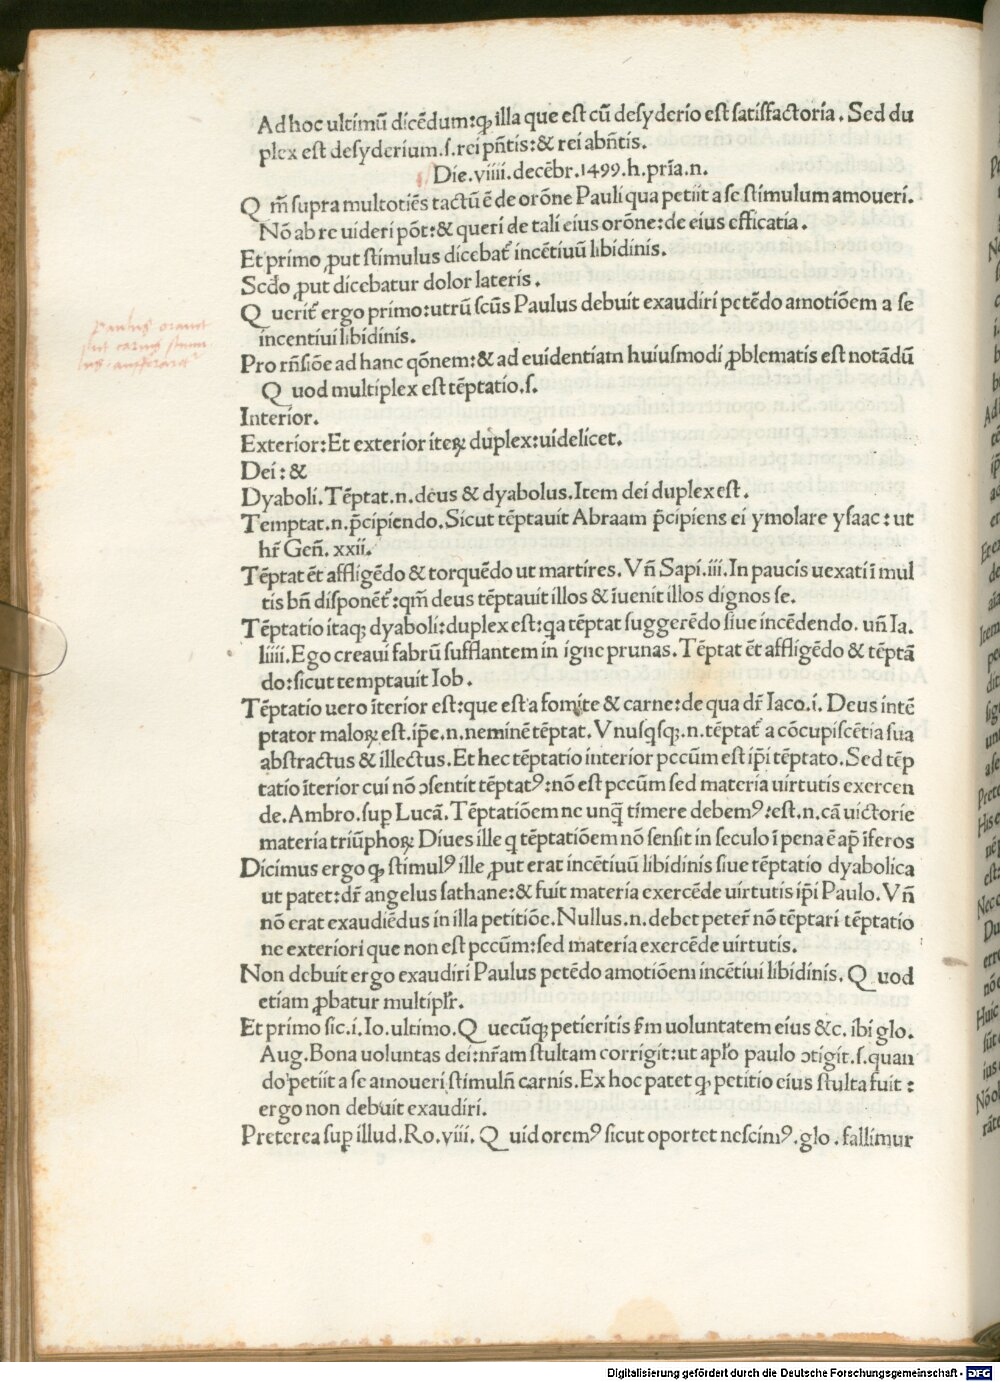 Ad hoc ultimū dicēdum:ꝙ illa que est cū desyderio est satisfactoria. Sed du
plex est desyderium.s.rei pñtis:& rei abñtis.
Die.viiii.decēbr.1499.h.pria.n.
Q m̄ supra multotiēs tactū ē de orōne Pauli qua petiit a se stimulum amoueri.
Nō ab re uideri pōt:& queri de tali eius orōne:de eius efficatia.
Et primo ꝓut stimulus dicebat̄ incētiuū libidinis.
Scđo ꝓut dicebatur dolor lateris.
Q uerit̄ ergo primo:utrū scūs Paulus debuit exaudiri petēdo amotiōem a se
incentiui libidinis.
Paulus orauit
stimu
lus aufferatur
Pro rñsiōe ad hanc qōnem:& ad euidentiam huiusmodi ꝓblematis est notādū
Q uod multiplex est tēptatio.s.
Interior.
Exterior:Et exterior iteꝝ duplex:uidelicet.
Dei:&
Dyaboli.Tēptat.n.deus & dyabolus.Item dei duplex est.
Temptat.n.p̄cipiendo.Sicut tēptauit Abraam p̄cipiens ei ymolare ysaac:ut
hr̄ Geñ.xxii.
Tēptat ēt affligēdo & torquēdo ut martires.Vñ Sapi.iii.In paucis uexati ī mul
tis bñ disponēt̄:qm̄ deus tēptauit illos & īuenit illos dignos se.
Tēptatio itaqꝫ dyaboli:duplex est:qa tēptat suggerēdo siue incēdendo.uñ Ia.
liiii.Ego creaui fabrū sufflantem in igne prunas.Tēptat ēt affligēdo & tēptā
do:sicut temptauit Iob.
Tēptatio uero īterior est:que est a fomite & carne:de qua dr̄ Iaco.i.Deus intē
ptator maloꝝ est.ip̄e.n.neminē tēptat.Vnusqsqꝫ.n.tēptat̄ a cōcupiscētia sua
abstractus & illectus.Et hec tēptatio interior pccūm est ip̄i tēptato.Sed tēp
tatio īterior cui nō ↄsentit tēptatꝰ:nō est pccūm sed materia uirtutis exercen
de.Ambro.suꝑ Lucā.Tēptatiōem ne unq̄ timere debemꝰ:est.n.cā uictorie
materia triūphoꝝ Diues ille q tēptatiōem nō sensit in seculo ī pena ē ap̄ īferos
Dicimus ergo ꝙ stimulꝰ ille ꝓut erat incētiuū libidinis siue tēptatio dyabolica
ut patet:dr̄ angelus sathane:& fuit materia exercēde uirtutis ip̄i Paulo.Vñ
nō erat exaudiēdus in illa petitiōe.Nullus.n.debet peter̄ nō tēptari tēptatio
ne exteriori que non est pccūm:sed materia exercēde uirtutis.
Non debuit ergo exaudiri Paulus petēdo amotiōem incētiui libidinis.Q uod
etiam ꝓbatur multipl̄r.
Et primo sic.i.Io.ultimo.Q uecūqꝫ petieritis s̄m uoluntatem eius &c.ibi glo.
Aug.Bona uoluntas dei:nr̄am stultam corrigit:ut apl̄o paulo ↄtigit.s.quan
do petiit a se amoueri stimulū carnis.Ex hoc patet ꝙ petitio eius stulta fuit:
ergo non debuit exaudiri.
Preterea suꝑ illud.Ro.viii.Q uid oremꝰ sicut oportet nescimꝰ.glo.fallimur
Digitalisierung gefördert durch die Deutsche Forschungsgemeinschaft - DFG